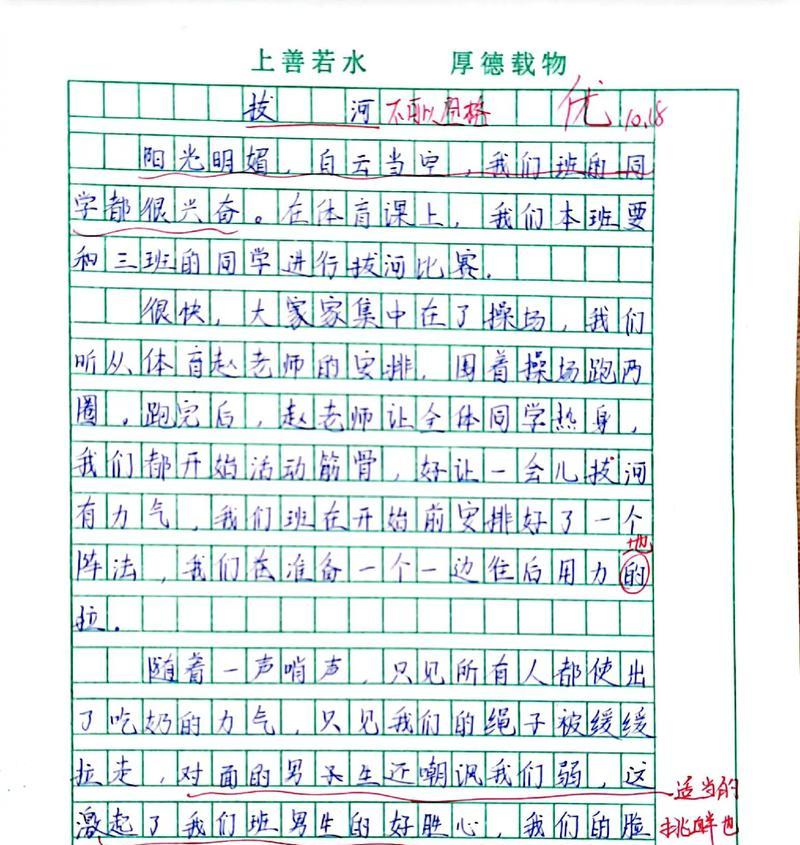 上善若水 厚德载物
拔 河 不可以空格 优 10.18
阳光明媚，白云当空，我们班的同
学都很兴奋。在体育课上，我们本班要
和三班的同学进行拔河比赛.
很快，大家家集中在了操场，我们
听从体育赵老师的安排，围着操场跑两
圈。跑完后，赵老师让全体同学热身，
我们都开始活动筋骨，好让一会儿拔河
有力气，我们班在开始前安排好了一个
地
阵法，我们在准备一个一边住后用力的
拉.
随着一声哨声，只见所有人都使出
了吃奶的力气，只见我们的绳子被缓缓
拉走，对面的男子生还嘲讽我们弱，这 适当的
激起了我们班男生的好胜心，我们的脸 挑衅也